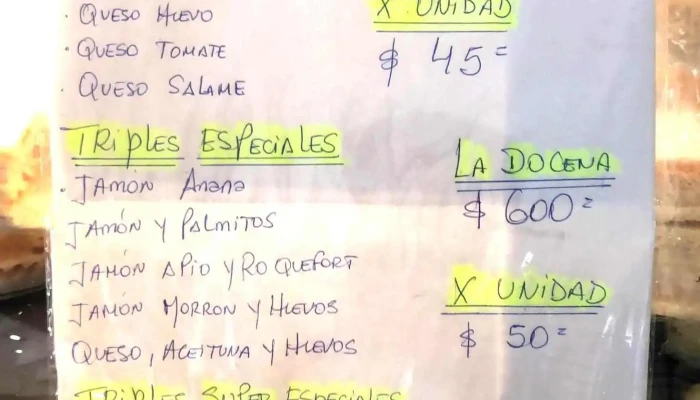 · QUESO HUEVO
X UNIDAD
· QUESO TOMATE
$ 45=
· QUESO SALAME
TRIPLES ESPECIALES
LA DOCENA
· JAMÓN Anana
$ 600=
JAMÓN Y PALMITOS
JAMÓN APIO Y ROQUEFORT
X UNIDAD
JAMÓN MORRON Y HUEVOS
$ 50=
QUESO, ACEITUNA Y HUEVOS
TRIPLES SUPER ESPECIALES